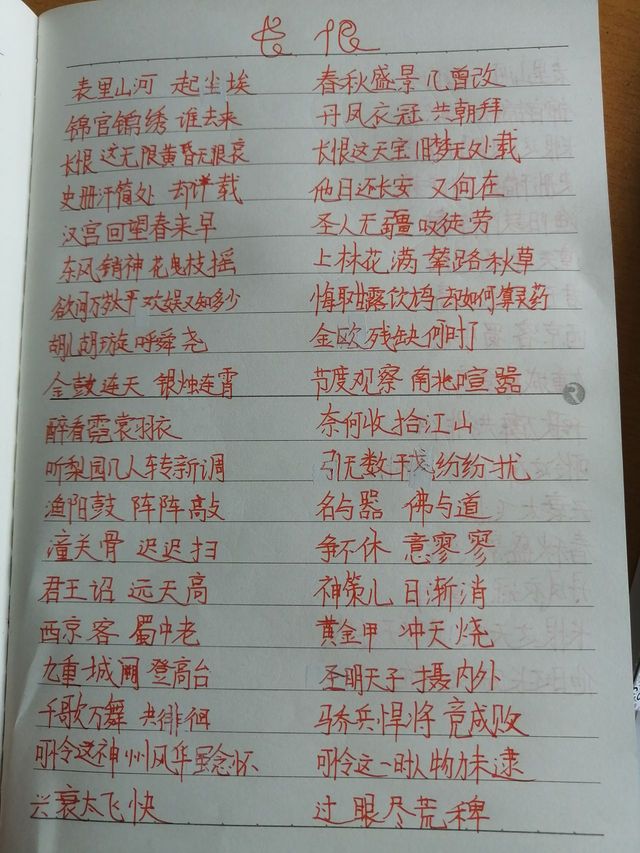 长恨
表里山河 起尘埃 春秋盛景几曾改
锦官锦绣 谁去来 丹凤衣冠 共朝拜
长恨这无限黄昏无限哀 长恨这天宝旧梦无处载
史册汗简处 却详载 他日还长安 又何在
汉宫回望春来早 圣人无疆叹徒劳
东风销神 花曳枝摇 上林花满 辇路秋草
欲问万岁太平 欢娱又知多少 悔取甘露饮鸩 却如何算灵药
胡儿胡璇呼舜尧 金欧残缺何时了
金鼓连天 银烛连霄 节度观察 南北喧嚣
醉看霓裳羽衣 奈何收拾江山
听梨园几人转新调 引无数干戈纷纷扰
渔阳鼓 阵阵高敲 名与器 佛与道
潼关骨 迟迟扫 争不休 意寥寥
君王诏 远天高 神策儿 日渐消
西京客 蜀中老 黄金甲 冲天烧
九重城阙 登高台 圣明天子 摄内外
千歌万舞 共徘徊 骄兵悍将 竟成败
可怜这神州风华虽念怀 可怜这一时人物力未逮
兴衰太飞快 过眼尽荒稗